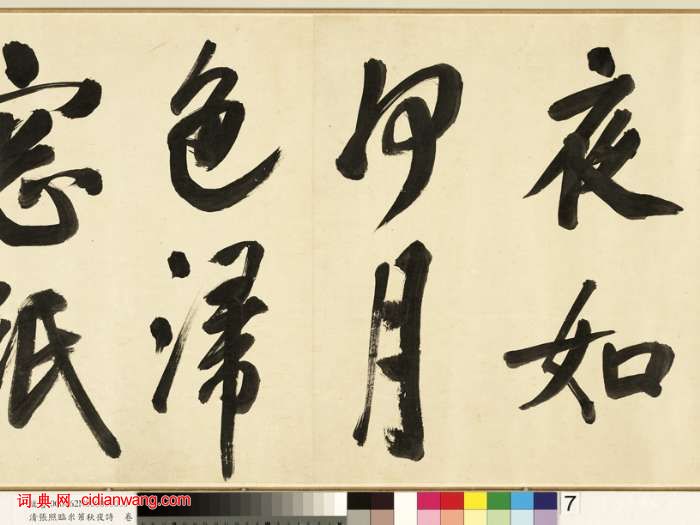 夜如
何月
色歸
窓紙
词典网 cidianwang.com
清張照臨米芾秋夜詩 卷
7